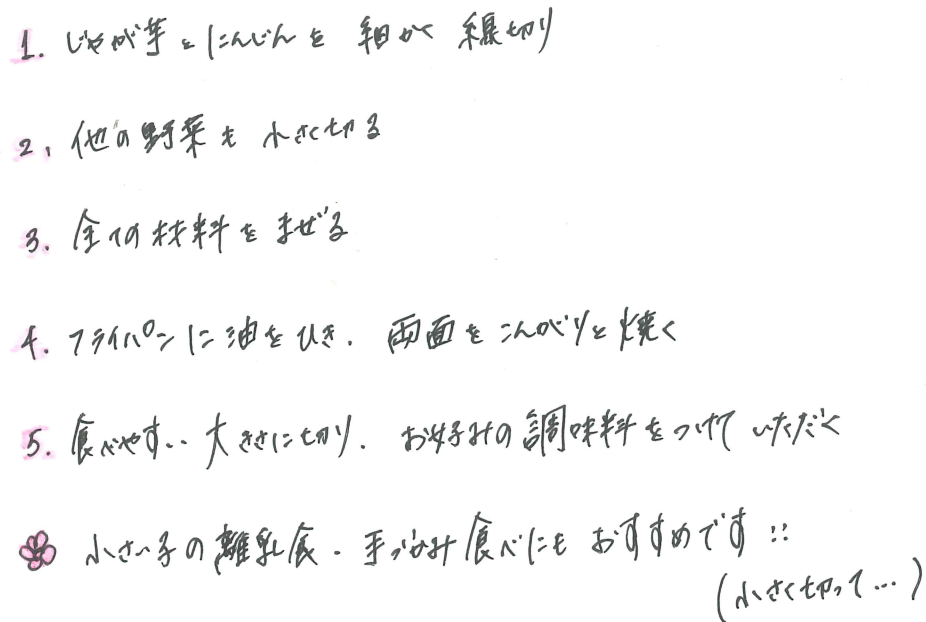 1. じゃが芋とにんじんを 細かく 線切り
2, 他の野菜も 小さく切る
3. 全ての材料をまぜる
4. フライパンに油をひき. 両面をこんがりと焼く
5. 食べやすい大きさに切り. お好みの調味料をつけていただく
小さい子の離乳食・手づかみ食べにもおすすめです!!
(小さく切って…)